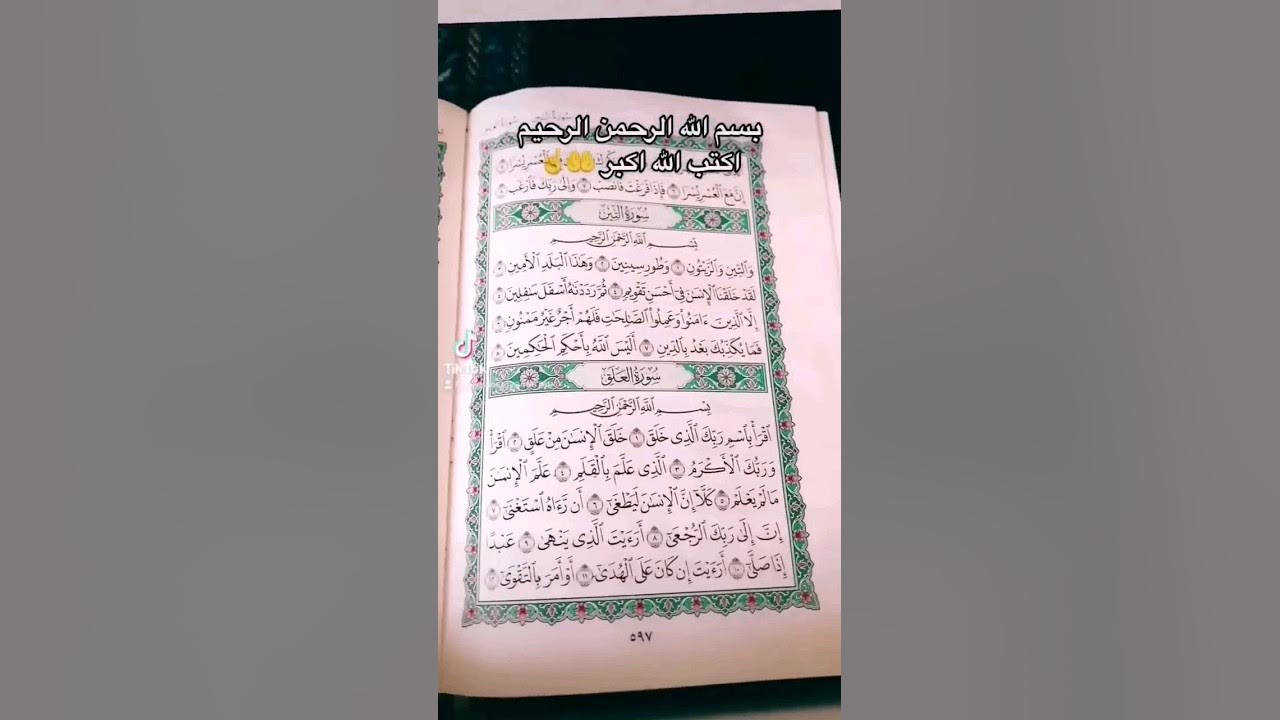 بسم الله الرحمن الرحيم
اكتب الله اكبر 🤲☝
ٱلْعُسْرِ يُسْرًا
إِنَّ مَعَ ٱلْعُسْرِ يُسْرًا ٦ فَإِذَا فَرَغْتَ فَٱنصَبْ ٧ وَإِلَىٰ رَبِّكَ فَٱرْغَب ٨
سُورَةُ التِّينِ
بِسْمِ ٱللَّهِ ٱلرَّحْمَٰنِ ٱلرَّحِيمِ
وَٱلتِّينِ وَٱلزَّيْتُونِ ١ وَطُورِ سِينِينَ ٢ وَهَٰذَا ٱلْبَلَدِ ٱلْأَمِينِ ٣
لَقَدْ خَلَقْنَا ٱلْإِنسَٰنَ فِىٓ أَحْسَنِ تَقْوِيمٍ ٤ ثُمَّ رَدَدْنَٰهُ أَسْفَلَ سَٰفِلِينَ ٥
إِلَّا ٱلَّذِينَ ءَامَنُوا۟ وَعَمِلُوا۟ ٱلصَّٰلِحَٰتِ فَلَهُمْ أَجْرٌ غَيْرُ مَمْنُونٍ ٦
فَمَا يُكَذِّبُكَ بَعْدُ بِٱلدِّينِ ٧ أَلَيْسَ ٱللَّهُ بِأَحْكَمِ ٱلْحَٰكِمِينَ ٨
TikTok
سُورَةُ العَلَقِ
بِسْمِ ٱللَّهِ ٱلرَّحْمَٰنِ ٱلرَّحِيمِ
ٱقْرَأْ بِٱسْمِ رَبِّكَ ٱلَّذِى خَلَقَ ١ خَلَقَ ٱلْإِنسَٰنَ مِنْ عَلَقٍ ٢ ٱقْرَأْ
وَرَبُّكَ ٱلْأَكْرَمُ ٣ ٱلَّذِى عَلَّمَ بِٱلْقَلَمِ ٤ عَلَّمَ ٱلْإِنسَٰنَ
مَا لَمْ يَعْلَمْ ٥ كَلَّآ إِنَّ ٱلْإِنسَٰنَ لَيَطْغَىٰٓ ٦ أَن رَّءَاهُ ٱسْتَغْنَىٰٓ ٧
إِنَّ إِلَىٰ رَبِّكَ ٱلرُّجْعَىٰٓ ٨ أَرَءَيْتَ ٱلَّذِى يَنْهَىٰ ٩ عَبْدًا
إِذَا صَلَّىٰٓ ١٠ أَرَءَيْتَ إِن كَانَ عَلَى ٱلْهُدَىٰٓ ١١ أَوْ أَمَرَ بِٱلتَّقْوَىٰٓ ١٢
٥٩٧